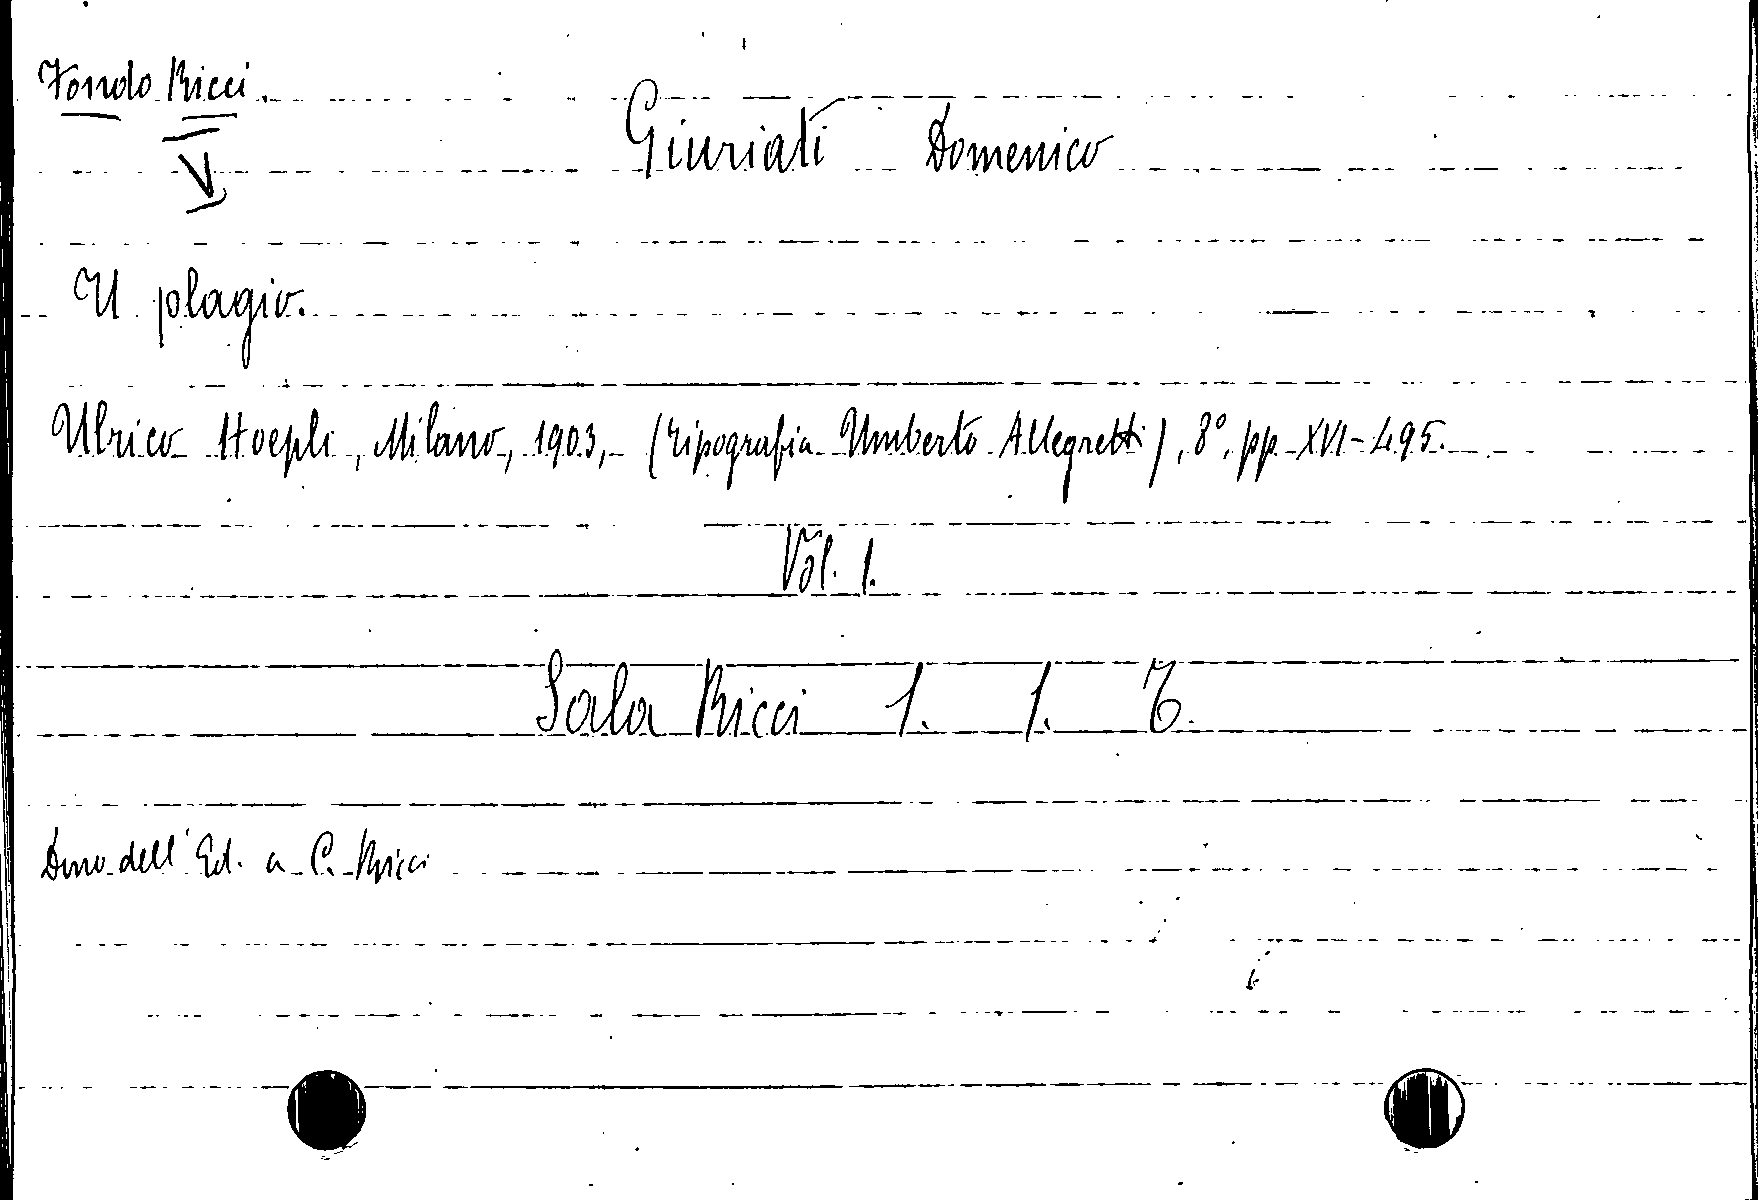 Fondo Ricci.
V
Giuriati Domenico
Il plagio.
Ulrico Hoepli, Milano, 1903, (Tipografia Umberto Allegretti), 8°, pp. XVI-495.
Vol. 1.
Sala Ricci 1. 1. 6.
Dono dell'Ed. a C. Ricci